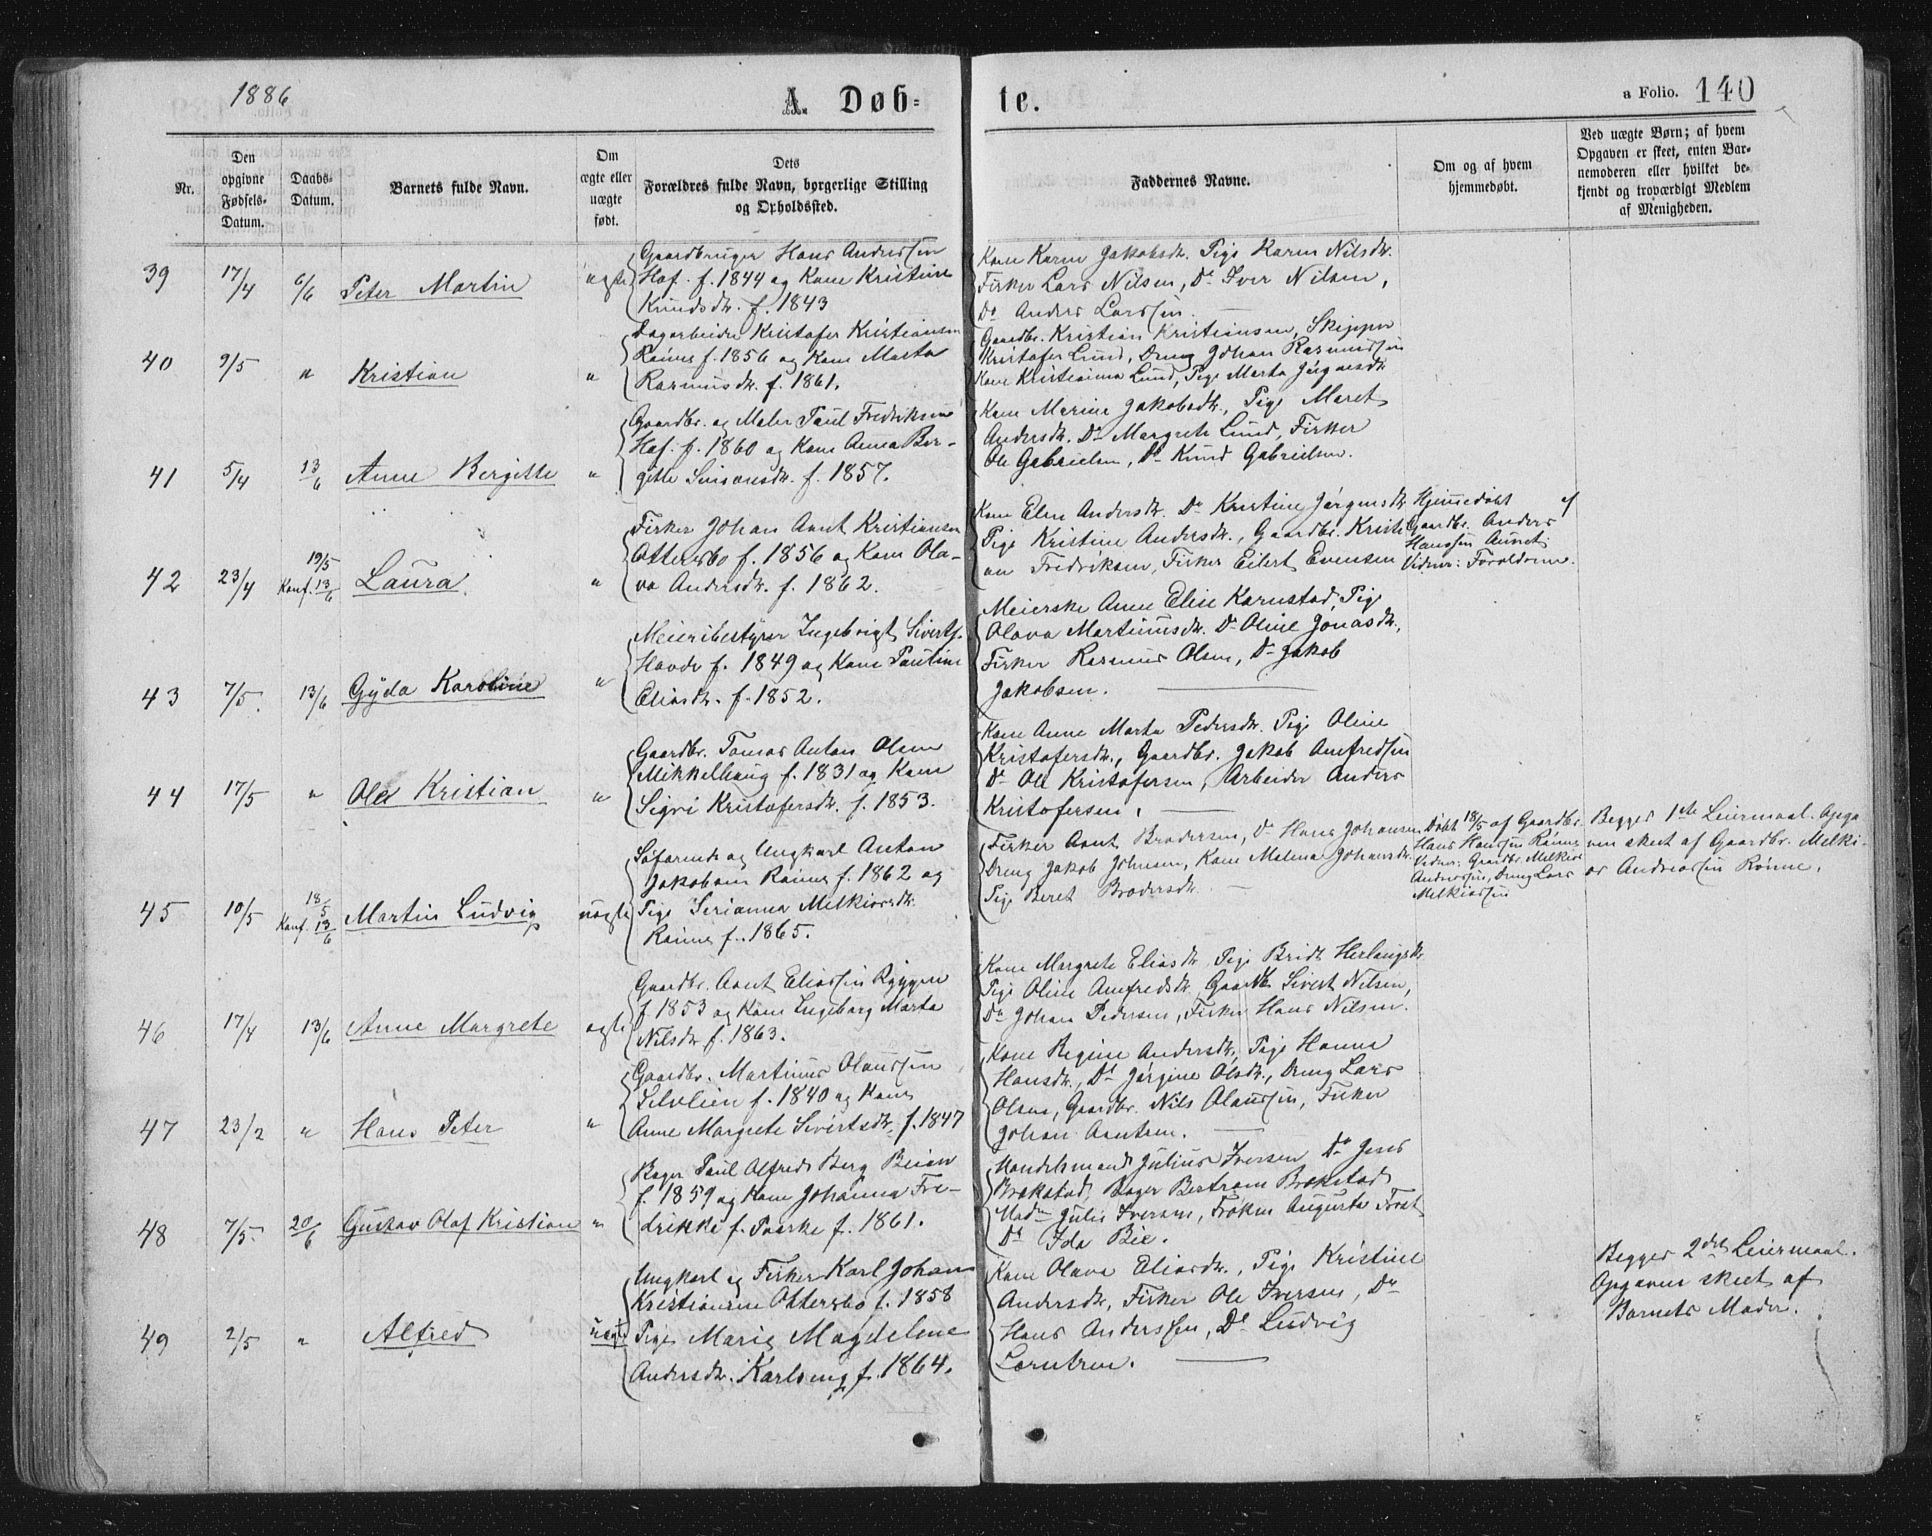 1886
A. Døb-
te.
a Folio. 140
Nr.
Den
opgivne
Fødsels-
Datum.
Daabs-
Datum.
Barnets fulde Navn.
Om
ægte eller
uægte
født.
Dets
Forældres fulde Navn, borgerlige Stilling
og Opholdssted.
Faddernes Navne.
Om og af hvem
hjemmedøbt.
Ved uægte Børn; af hvem
Opgaven er skeet, enten Bar-
nemoderen eller hvilket be-
kjendt og troværdigt Medlem
af Menigheden.
39 17/4 6/6 Peter Martin ægte
Gaardbruger Hans Anderssen
Hof. f. 1844 og Kone Kristine
Knudsdtr. f. 1843
Kone Karen Jakobsdtr. Pige Karen Nilsdtr.
Fisker Lars Nilsen, Do Iver Nilsen,
Do Anders Larssen.
40 9/5 " Kristian "
Dagarbeider Kristofer Kristiansen
Raines f. 1856 og Kone Marta
Rasmusdtr. f. 1861.
Gaardbr. Kristian Kristiansen, Skipper
Kristofer Lund, Dreng Johan Rasmussen
Kone Kristianna Lund, Pige Marta Jørgensdtr
41 5/4 13/6 Anne Bergitte "
Gaardbr. og Maler Paul Fredriksen
Hof. f. 1860 og Kone Anna Ber-
gitte Simonsdtr. f. 1857.
Kone Marine Jakobsdtr., Pige Maret
Andersdtr. Do Margrete Lund, Fisker
Ole Gabrielsen, Do Knud Gabrielsen.
42 23/4 19/5 Konf. 13/6 Laura "
Fisker Johan Arnt Kristiansen
Ottersbo f. 1856 og Kone Ola-
va Andersdtr. f. 1862.
Kone Elen Andersdtr. Do Kristine Jørgensdtr
Pige Kristine Andersdtr., Gaardbr. Kristi
an Fredriksen, Fisker Eilert Evensen
Hjemmedøbt af
Gaardbr. Anders
Hanssen Aunet
Vidner: Forældrene.
43 7/5. 13/6 Gyda Karoline "
Meieribestyrer Ingebrigt Siverts.
Hovde f. 1849 og Kone Pauline
Eliasdtr. f. 1852.
Meierske Anne Elise Karnstad, Pige
Olava Martinusdtr. Do Oline Jonasdtr,
Fisker Rasmus Olsen, Do Jakob
Jakobsen.
44 17/5 " Ole Kristian "
Gaardbr. Tomas Anton Olsen
Mikkelhaug f. 1831 og Kone
Sigri Kristofersdtr. f. 1853.
Kone Anne Marta Pedersdtr. Pige Oline
Kristofersdtr., Gaardbr. Jakob Arnfredsen
Do Ole Kristofersen, Arbeider Anders
Kristofersen.
45 10/5 18/5 Konf. 13/6 Martin Ludvig uægte
Søfarende og Ungkarl Anton
Jakobsen Raines f. 1862 og
Pige Serianna Melkiorsdtr.
Raines f. 1865.
Fisker Arnt Brodersen, Do Hans Johansen
Dreng Jakob Johnsen, Kone Malena Johansdtr.
Pige Beret Brodersdtr.
Døbt 18/5 af Gaardbr.
Hans Hanssen Rønne
Vidner: Gaardbr. Melkior
Andreassen, Dreng Lars
Melkiorsen
Begges 1ste Leiermaal. Opga
ven skeet af Gaardbr. Melki-
or Andreassen Rønne.
46 17/4 13/6 Anne Margrete ægte
Gaardbr. Arnt Eliassen Ryggen
f. 1853 og Kone Ingeborg Marta
Nilsdtr f. 1863.
Kone Margrete Eliasdtr, Pige Bridt Herlaugsdtr.
Pige Oline Arnfredsdtr, Gaardbr Sivert Nilsen,
Do Johan Pedersen, Fisker Hans Nilsen.
47 23/2 " Hans Peter "
Gaardbr. Martinus Olaussen
Selvlien f. 1840 og Kone
Anne Margrete Sivertsdtr. f. 1847
Kone Regine Andersdtr, Pige Hanna
Hansdtr., Do Jørgine Olsdtr., Dreng Lars
Olsen, Gaardbr. Nils Olaussen, Fisker
Johan Arntsen.
48 7/5 20/6 Gustav Olaf Kristian "
Bager Paul Alfred Berg Beian
f. 1859 og Kone Johanna Fre-
drikke f. Paaske f. 1861.
Handelsmand Julius Iversen Do Jens
Brækstad, Bager Bertram Brækstad
Madm Julie Iversen, Frøken Augusta Frost
Do Ida Bie.
49 2/5 " Alfred uægte
Ungkarl og Fisker Karl Johan
Kristiansen Ottersbo f. 1858
Pige Marie Magdelene
Andersdtr. Karlseng f. 1864.
Kone Olava Eliasdtr., Pige Kristine
Andersdtr, Fisker Ole Iversen, Do
Hans Anderssen, Do Ludvig
Lorentsen.
Begges 2det Leiermaal.
Opgaven skeet af
Barnets Moder.